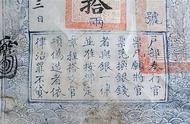 號
拾兩
三日
戶部奏行官
票凡願將官
票兌換銀錢
者與銀一律
並准按部定
章程搭交官
項偽造者依
律治罪不貸